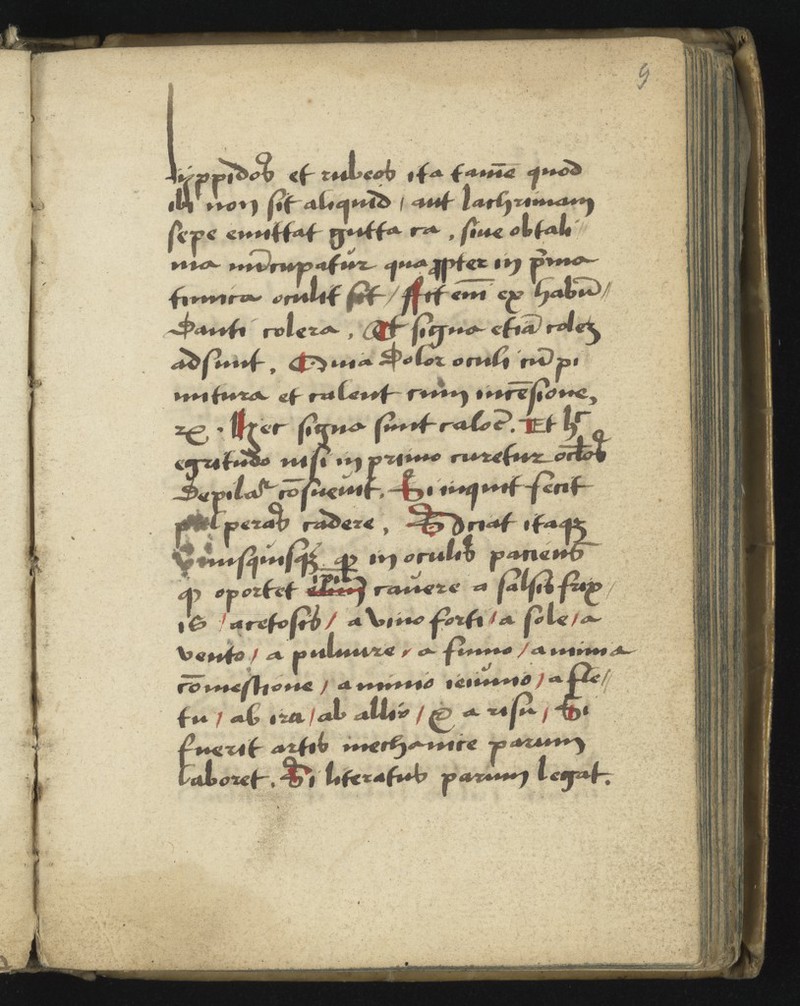 9
lyppidos et rubeos ita tamē quod
ibi non sit aliquid / aut lachrimam
sepe emittat gutta ca, siue obtali//
mia nūcupatur qua ꝓpter in p̄ma
tunica oculi sit / fit em̄ ex habū//
danti colera, Et signa etiā colez
adsunt, Quia dolor oculi cū pi
mitura et calent cum incēsione,
Hec signa sunt caloꝝ. Et hͨ
egritudo nisi in primo curetur oclos
depilaͬ cōsueuit. Si inquit fecit
palperas cadere, Sciat itaqꝫ
vnusquisqꝫ in oculis paciens
oportet cauere a salsis frix/
is / acetosis / a vino forti / a sole / a
vento / a puluure / a fumo / a nimia
cōmestione / a nimio ieiunio / a fle//
tu / ab ira / ab allio / & a risu / Si
fuerit artis mechanice parum
laboret. Si literatus parum legat.